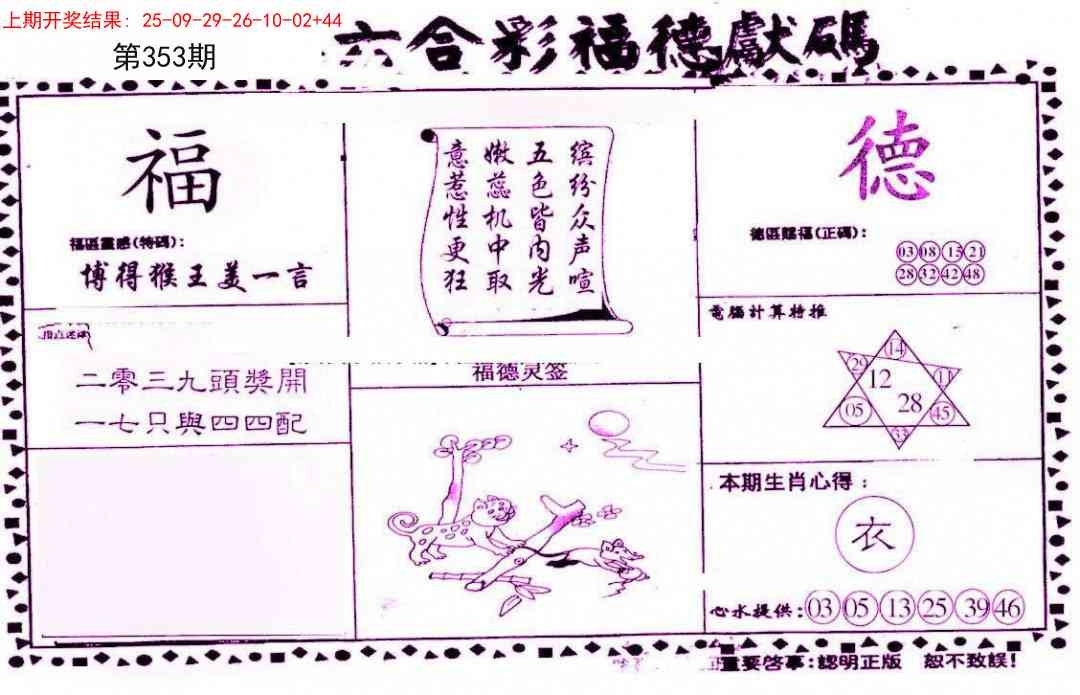 上期开奖结果：25-09-29-26-10-02+44
第353期
六合彩福德獻碼
福
福區靈感(特碼)：
博得猴王美一言
缤纷众声喧
五色皆内光
嫩蕊机中取
意惹性更狂
德
德區賜福(正碼)：
03 08 15 21
28 32 42 48
二零三九頭獎開
一七只與四四配
福德灵签
電腦計算特推
14
29 11
12
28
05 45
33
本期生肖心得：
衣
心水提供：03 05 13 25 39 46
重要啓事：認明正版 恕不致誤！